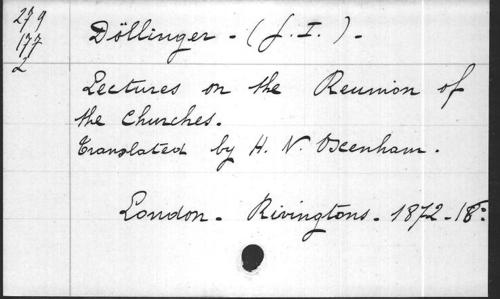 279
177
2
Döllinger - (J. I.) -
Lectures on the Reunion of
the Churches.
Translated by H. N. Oxenham.
London - Rivingtons - 1872 - 18º